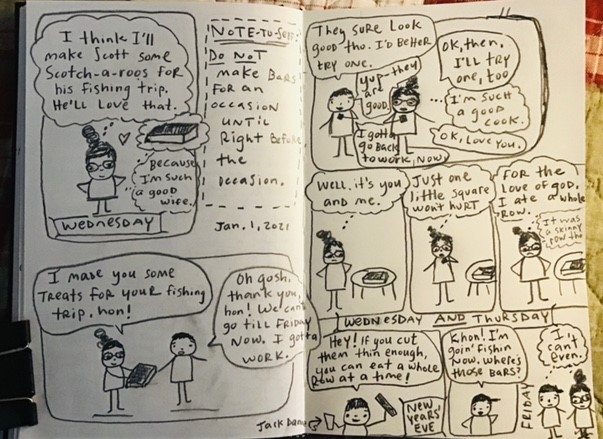 I think I'll
make Scott some
Scotch-a-roos for
his fishing trip.
He'll love that.
Because
I'm such
a good
wife.
WEDNESDAY
NOTE-TO-SELF:
DO NOT
make BARS
FOR an
occasion
UNTIL
Right Before
the
occasion.
Jan. 1, 2021
I made you some
Treats for your fishing
trip, hon!
Oh gosh,
thank you,
hon! We can't
go till FRIDAY
NOW. I gotta
WORK.
They sure look
good tho. I'd better
try one.
yup-they
are
good.
I gotta
go back
to work, now
OK, then.
I'll try
one, too
I'm such
a good
cook.
OK, Love you.
Well, it's you
and me.
Just one
little square
won't HURT
FOR the
Love of god,
I ate a whole
Row.
It was
a skinny
row tho
WEDNESDAY AND THURSDAY
Hey! If you cut
them thin enough,
you can eat a whole
Row at a time!
Jack Dan
NEW
YEARS'
EVE
K hon! I'm
goin' Fishin
Now. Where's
those BARS?
FRIDAY
I
can't
even.